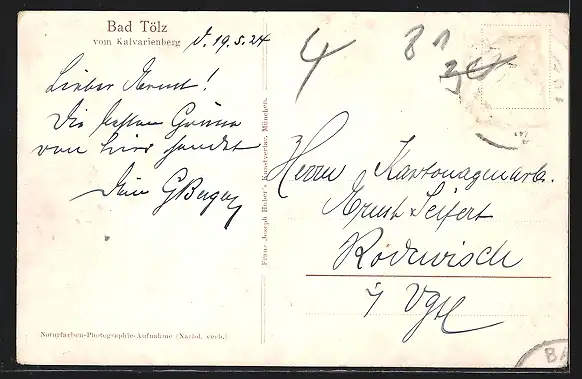 Bad Tölz
vom Kalvarienberg
d. 19.5.24
Lieber Ernst!
Die besten Grüsse
von hier sendet
Dein G
4
81
Herrn Kartonagenarb.
Ernst Seifert
Rodewisch
i/ Vgtl
Franz Joseph Huber's Kunstverlag, München.
Naturfarben-Photographie-Aufnahme (Nachd. verb.)
BA